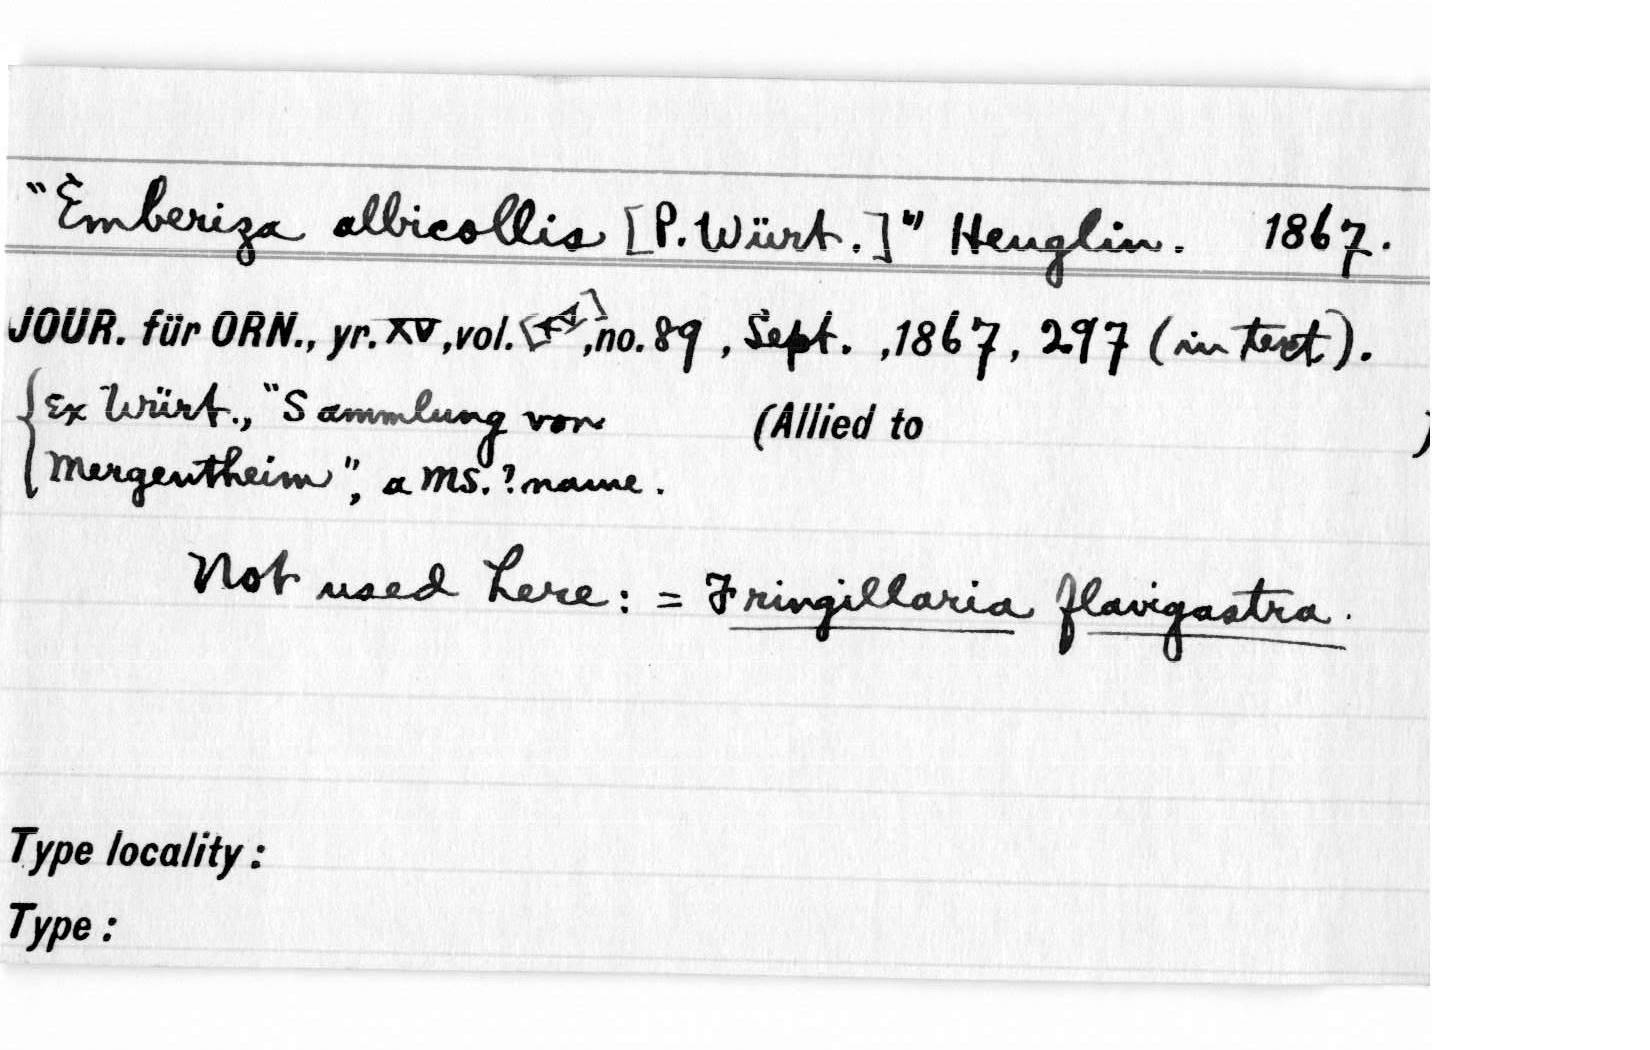 "Emberiza albicollis [P. Würt.]" Heuglin. 1867.
JOUR. für ORN., yr. XV, vol. [15], no. 89, Sept., 1867, 297 (in text).
{Ex Würt., "Sammlung von (Allied to )
Mergentheim", a MS. ? name.
Not used here: = Fringillaria flavigastra.
Type locality:
Type: